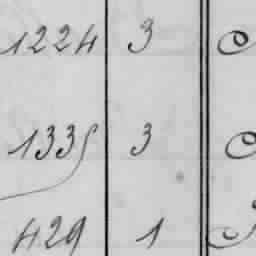 1224 3
1335 3
429 1